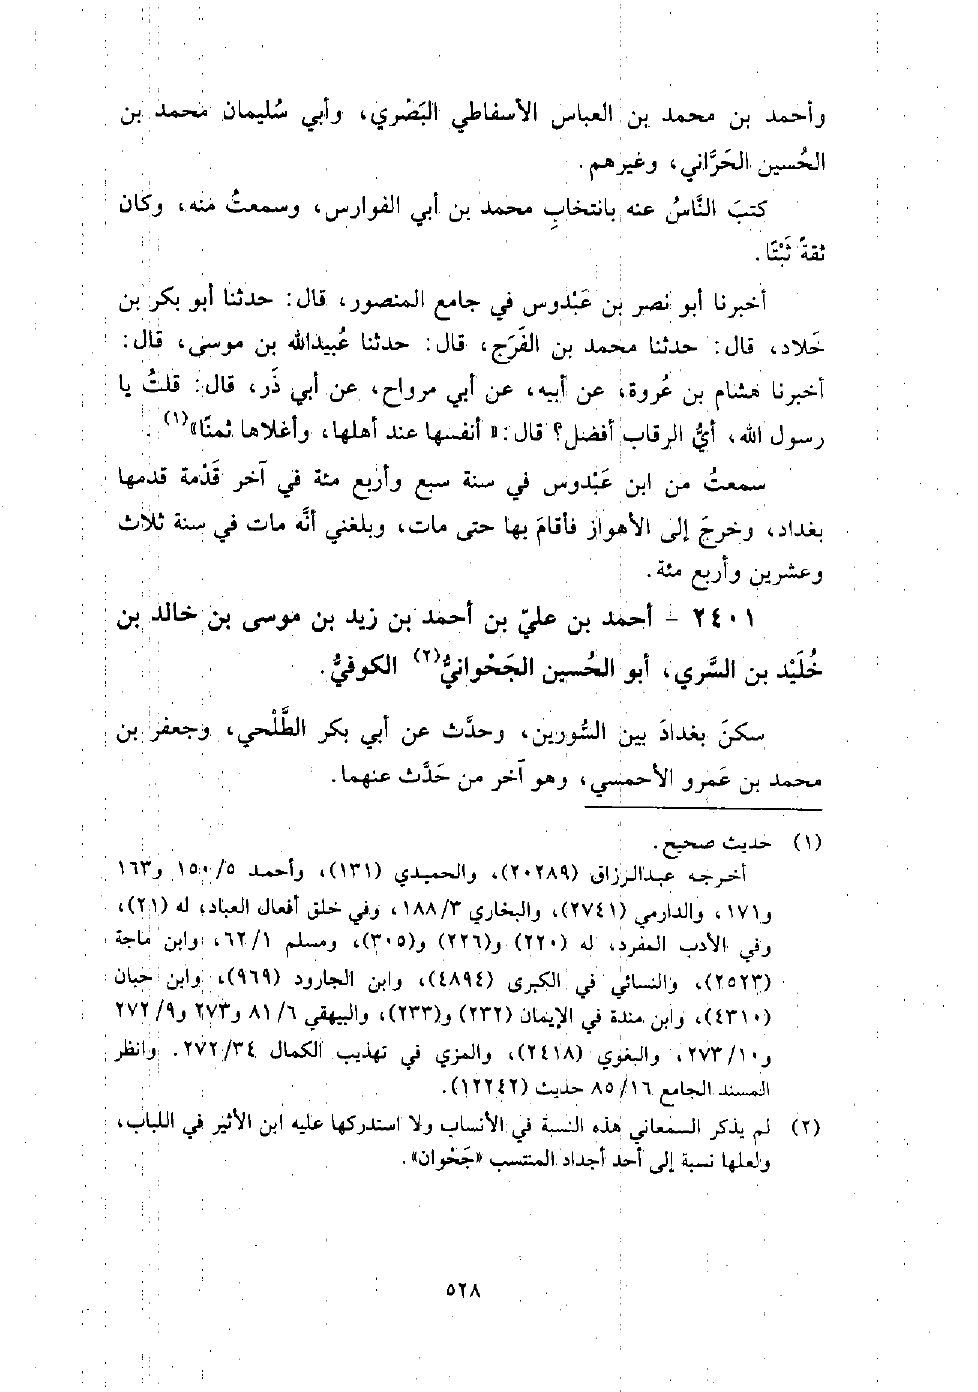 وأحمد بن محمد بن العباس الأسفاطي البَصْري، وأبي سُليمان محمد بن
الحُسين الحَرَّاني، وغيرهم.
كتبَ النَّاسُ عنه بانتخابِ محمد بن أبي الفوارس، وسمعتُ منه، وكان
ثقةً ثَبْتًا.
أخبرنا أبو نصر بن عَبْدوس في جامع المنصور، قال: حدثنا أبو بكر بن
خَلاد، قال: حدثنا محمد بن الفَرَج، قال: حدثنا عُبيدالله بن موسى، قال:
أخبرنا هشام بن عُروة، عن أبيه، عن أبي مرواح، عن أبي ذَر، قال: قلتُ يا
رسول الله، أيُّ الرقاب أفضل؟ قال: «أنفسها عند أهلها، وأغلاها ثمنًا»(١).
سمعتُ من ابن عَبْدوس في سنة سبع وأربع مئة في آخر قَدْمة قدمها
بغداد، وخرجَ إلى الأهواز فأقامَ بها حتى مات، وبلغني أنَّه مات في سنة ثلاث
وعشرين وأربع مئة.
٢٤٠١ - أحمد بن عليّ بن أحمد بن زيد بن موسى بن خالد بن
خُلَيْد بن السَّري، أبو الحُسين الجَحْوانيُّ(٢) الكوفيُّ.
سكنَ بغدادَ بين السُّورين، وحدَّث عن أبي بكر الطَّلْحي، وجعفر بن
محمد بن عَمرو الأحمسي، وهو آخر من حَدَّث عنهما.
(١) حديث صحيح.
أخرجه عبدالرزاق (٢٠٢٨٩)، والحميدي (١٣١)، وأحمد ٥/ ١٥٠ و١٦٣
و١٧١، والدارمي (٢٧٤١)، والبخاري ٣/ ١٨٨، وفي خلق أفعال العباد، له (٢١)،
وفي الأدب المفرد، له (٢٢٠) و(٢٢٦) و(٣٠٥)، ومسلم ١/ ٦٢، وابن ماجة
(٢٥٢٣)، والنسائي في الكبرى (٤٨٩٤)، وابن الجارود (٩٦٩)، وابن حبان
(٤٣١٠)، وابن مندة في الإيمان (٢٣٢) و(٢٣٣)، والبيهقي ٦/ ٨١ و٢٧٣ و٩/ ٢٧٢
و١٠/ ٢٧٣، والبغوي (٢٤١٨)، والمزي في تهذيب الكمال ٣٤/ ٢٧٢. وانظر
المسند الجامع ١٦/ ٨٥ حديث (١٢٢٤٢).
(٢) لم يذكر السمعاني هذه النسبة في الأنساب ولا استدركها عليه ابن الأثير في اللباب،
ولعلها نسبة إلى أحد أجداد المنتسب «جَحْوان».
٥٢٨